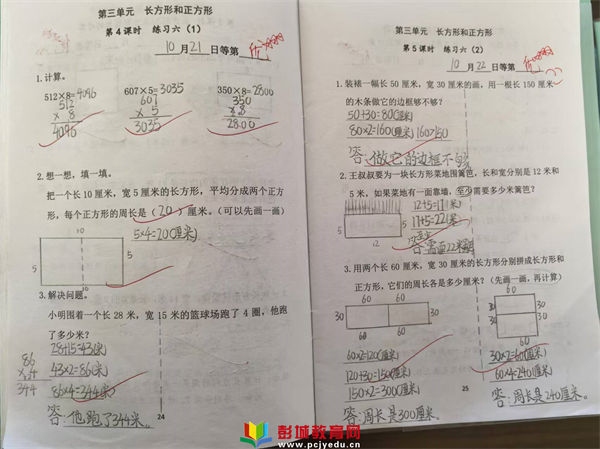 第三单元 长方形和正方形
第4课时 练习六（1）
10月21日等第 优
1.计算。
512×8=4096 607×5=3035 350×8=2800
512 607 350
× 8 × 5 × 8
4096 3035 2800
2.想一想，填一填。
把一个长10厘米，宽5厘米的长方形，平均分成两个正方
形，每个正方形的周长是（20）厘米。（可以先画一画）
5×4=20(厘米)
10
5 5
10
3.解决问题。
小明围着一个长28米，宽15米的篮球场跑了4圈，他跑
了多少米？
28+15=43(米)
86
× 4
344
43×2=86(米)
86×4=344(米)
答：他跑了344米。
24
第三单元 长方形和正方形
第5课时 练习六（2）
10月22日等第 优
1.装裱一幅长50厘米，宽30厘米的画，用一根长150厘米
的木条做它的边框够不够？
50+30=80(厘米)
80×2=160(厘米) 160>150
答：做它的边框不够
2.王叔叔要为一块长方形菜地围篱笆，长和宽分别是12米和
5米，如果菜地有一面靠墙，至少需要多少米篱笆？
12+5=17(米)
17+5=22(米)
5
12
答：需要22米
3.用两个长60厘米，宽30厘米的长方形分别拼成长方形和
正方形，它们的周长各是多少厘米？（先画一画，再计算）
60 60
30 30
60 60
60
30 30
30 30
60
60×2=120(厘米)
120+30=150(厘米)
150×2=300(厘米)
答：周长是300厘米。
30×2=60(厘米)
60×4=240(厘米)
答：周长是240厘米。
25
彭城教育网
www.pcjyedu.cn